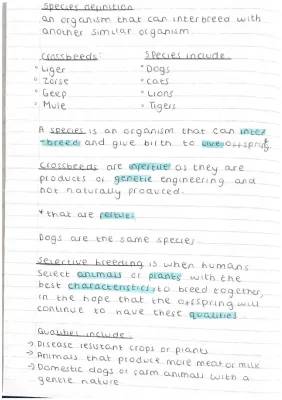 Species definition
an organism that can interbreed with
another similar organism.
Crossbreeds: Species include:
° Liger ° Dogs
° Zorse ° Cats
° Geep ° Lions
° Mule ° Tigers
A species is an organism that can inter
-breed and give birth to live offspring.
Crossbreeds are infertile as they are
products of genetic engineering and
not naturally produced.
* that are fertile.
Dogs are the same species
Selective breeding is when humans
select animals or plants with the
best characteristics, to breed together,
in the hope that the offspring will
continue to have these qualities.
Qualities include:
→ Disease resistant crops or plants
→ Animals that produce more meat or milk
→ Domestic dogs or farm animals with a
gentle nature.